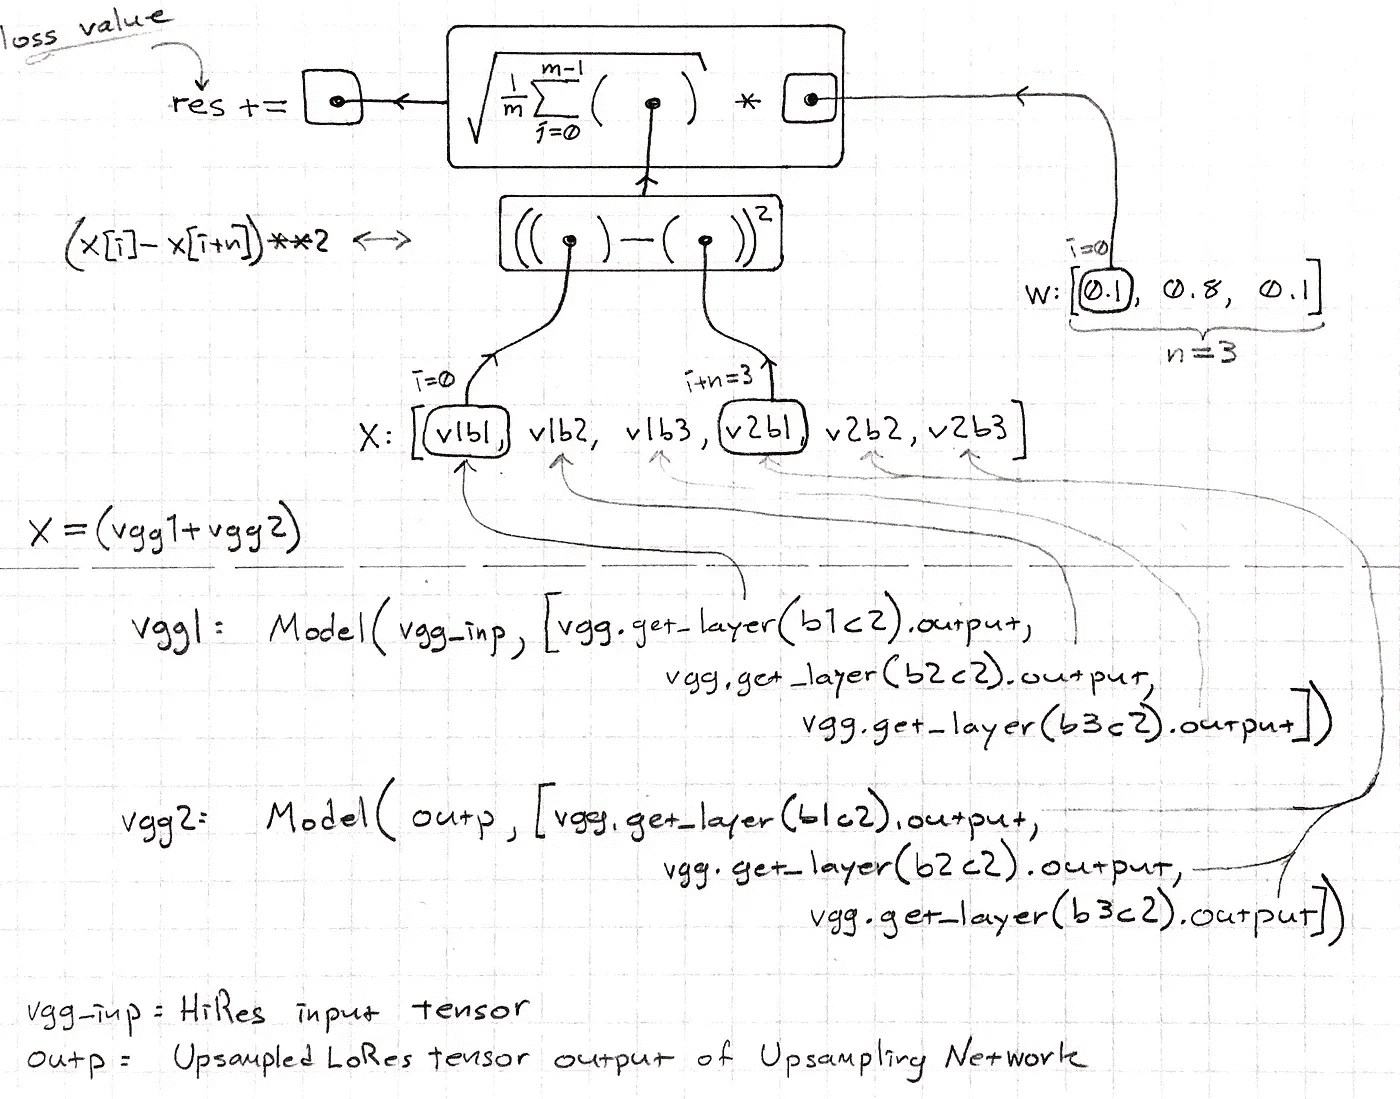 loss value
res += [•] √ 1/m Σ m-1 j=0 ( • ) * [•]
(x[i]-x[i+n])**2 ↔ ((•)—(•))²
i=0
w: [0.1, 0.8, 0.1]
n=3
i=0 i+n=3
X: [v1b1, v1b2, v1b3, v2b1, v2b2, v2b3]
X = (vgg1+vgg2)
vgg1: Model(vgg_inp, [vgg.get_layer(b1c2).output,
vgg.get_layer(b2c2).output,
vgg.get_layer(b3c2).output])
vgg2: Model( outp, [vgg.get_layer(b1c2).output,
vgg.get_layer(b2c2).output,
vgg.get_layer(b3c2).output])
vgg_inp = HiRes input tensor
outp = Upsampled LoRes tensor output of Upsampling Network